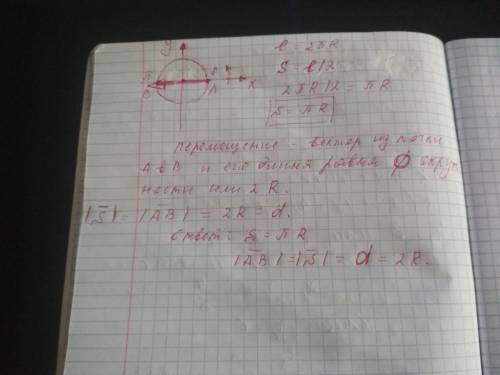 y
π
0
B
A
x
l = 2πR
S = l/2
2πR/2 = πR
S = πR
перемещение - вектор из точки
A в B и его длина равна ∅ окруж
ности или 2R.
|S̅| = |A̅B̅| = 2R = d.
Ответ: S = πR
|A̅B̅| = |S̅| = d = 2R.